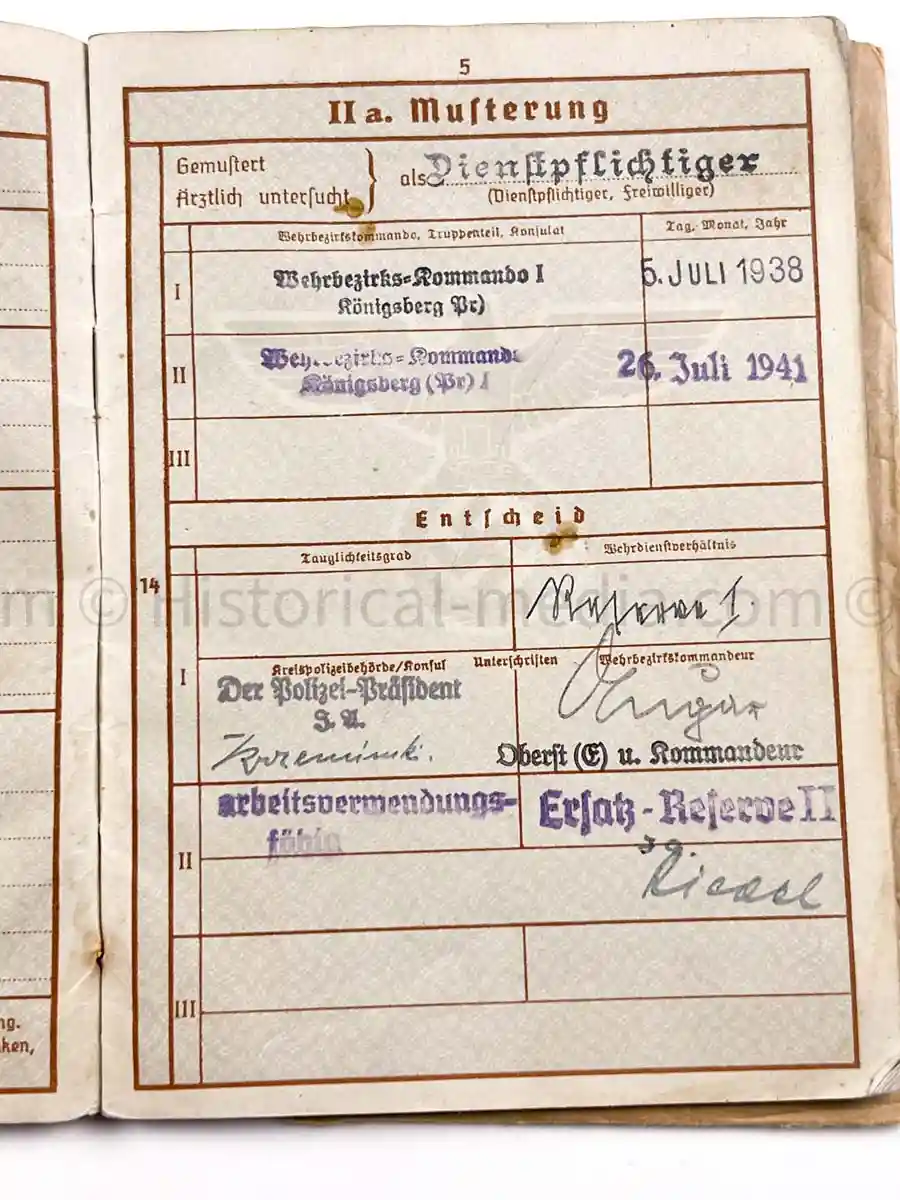 5
II a. Musterung
Gemustert
Ärztlich untersucht
als Dienstpflichtiger
(Dienstpflichtiger, Freiwilliger)
Wehrbezirkskommando, Truppenteil, Konsulat
Tag, Monat, Jahr
I
Wehrbezirks=Kommando I
Königsberg Pr)
5. JULI 1938
II
Wehrbezirks=Kommando
Königsberg (Pr) I
26. Juli 1941
III
Entscheid
Tauglichkeitsgrad
Wehrdienstverhältnis
14
© Historical-media.com ©
Reserve I.
I
Kreispolizeibehörde/Konsul Unterschriften Wehrbezirkskommandeur
Der Polizei-Präsident
I. A.
Oberst (E) u. Kommandeur
II
arbeitsverwendungs-
fähig
Ersatz-Reserve II
Riedel
III
ng.
ken,